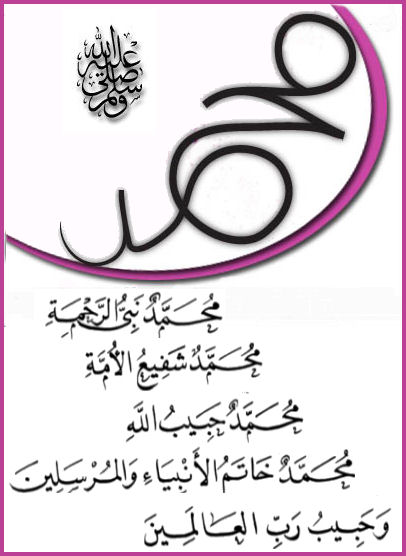 صلى الله عليه وسلم
محمد
مُحَمَّدٌ نَبِيُّ الرَّحْمَةِ
مُحَمَّدٌ شَفِيعُ الأُمَّةِ
مُحَمَّدٌ حَبِيبُ اللَّهِ
مُحَمَّدٌ خَاتَمُ الأَنْبِيَاءِ وَالمُرْسَلِينَ
وَحَبِيبُ رَبِّ العَالَمِينَ